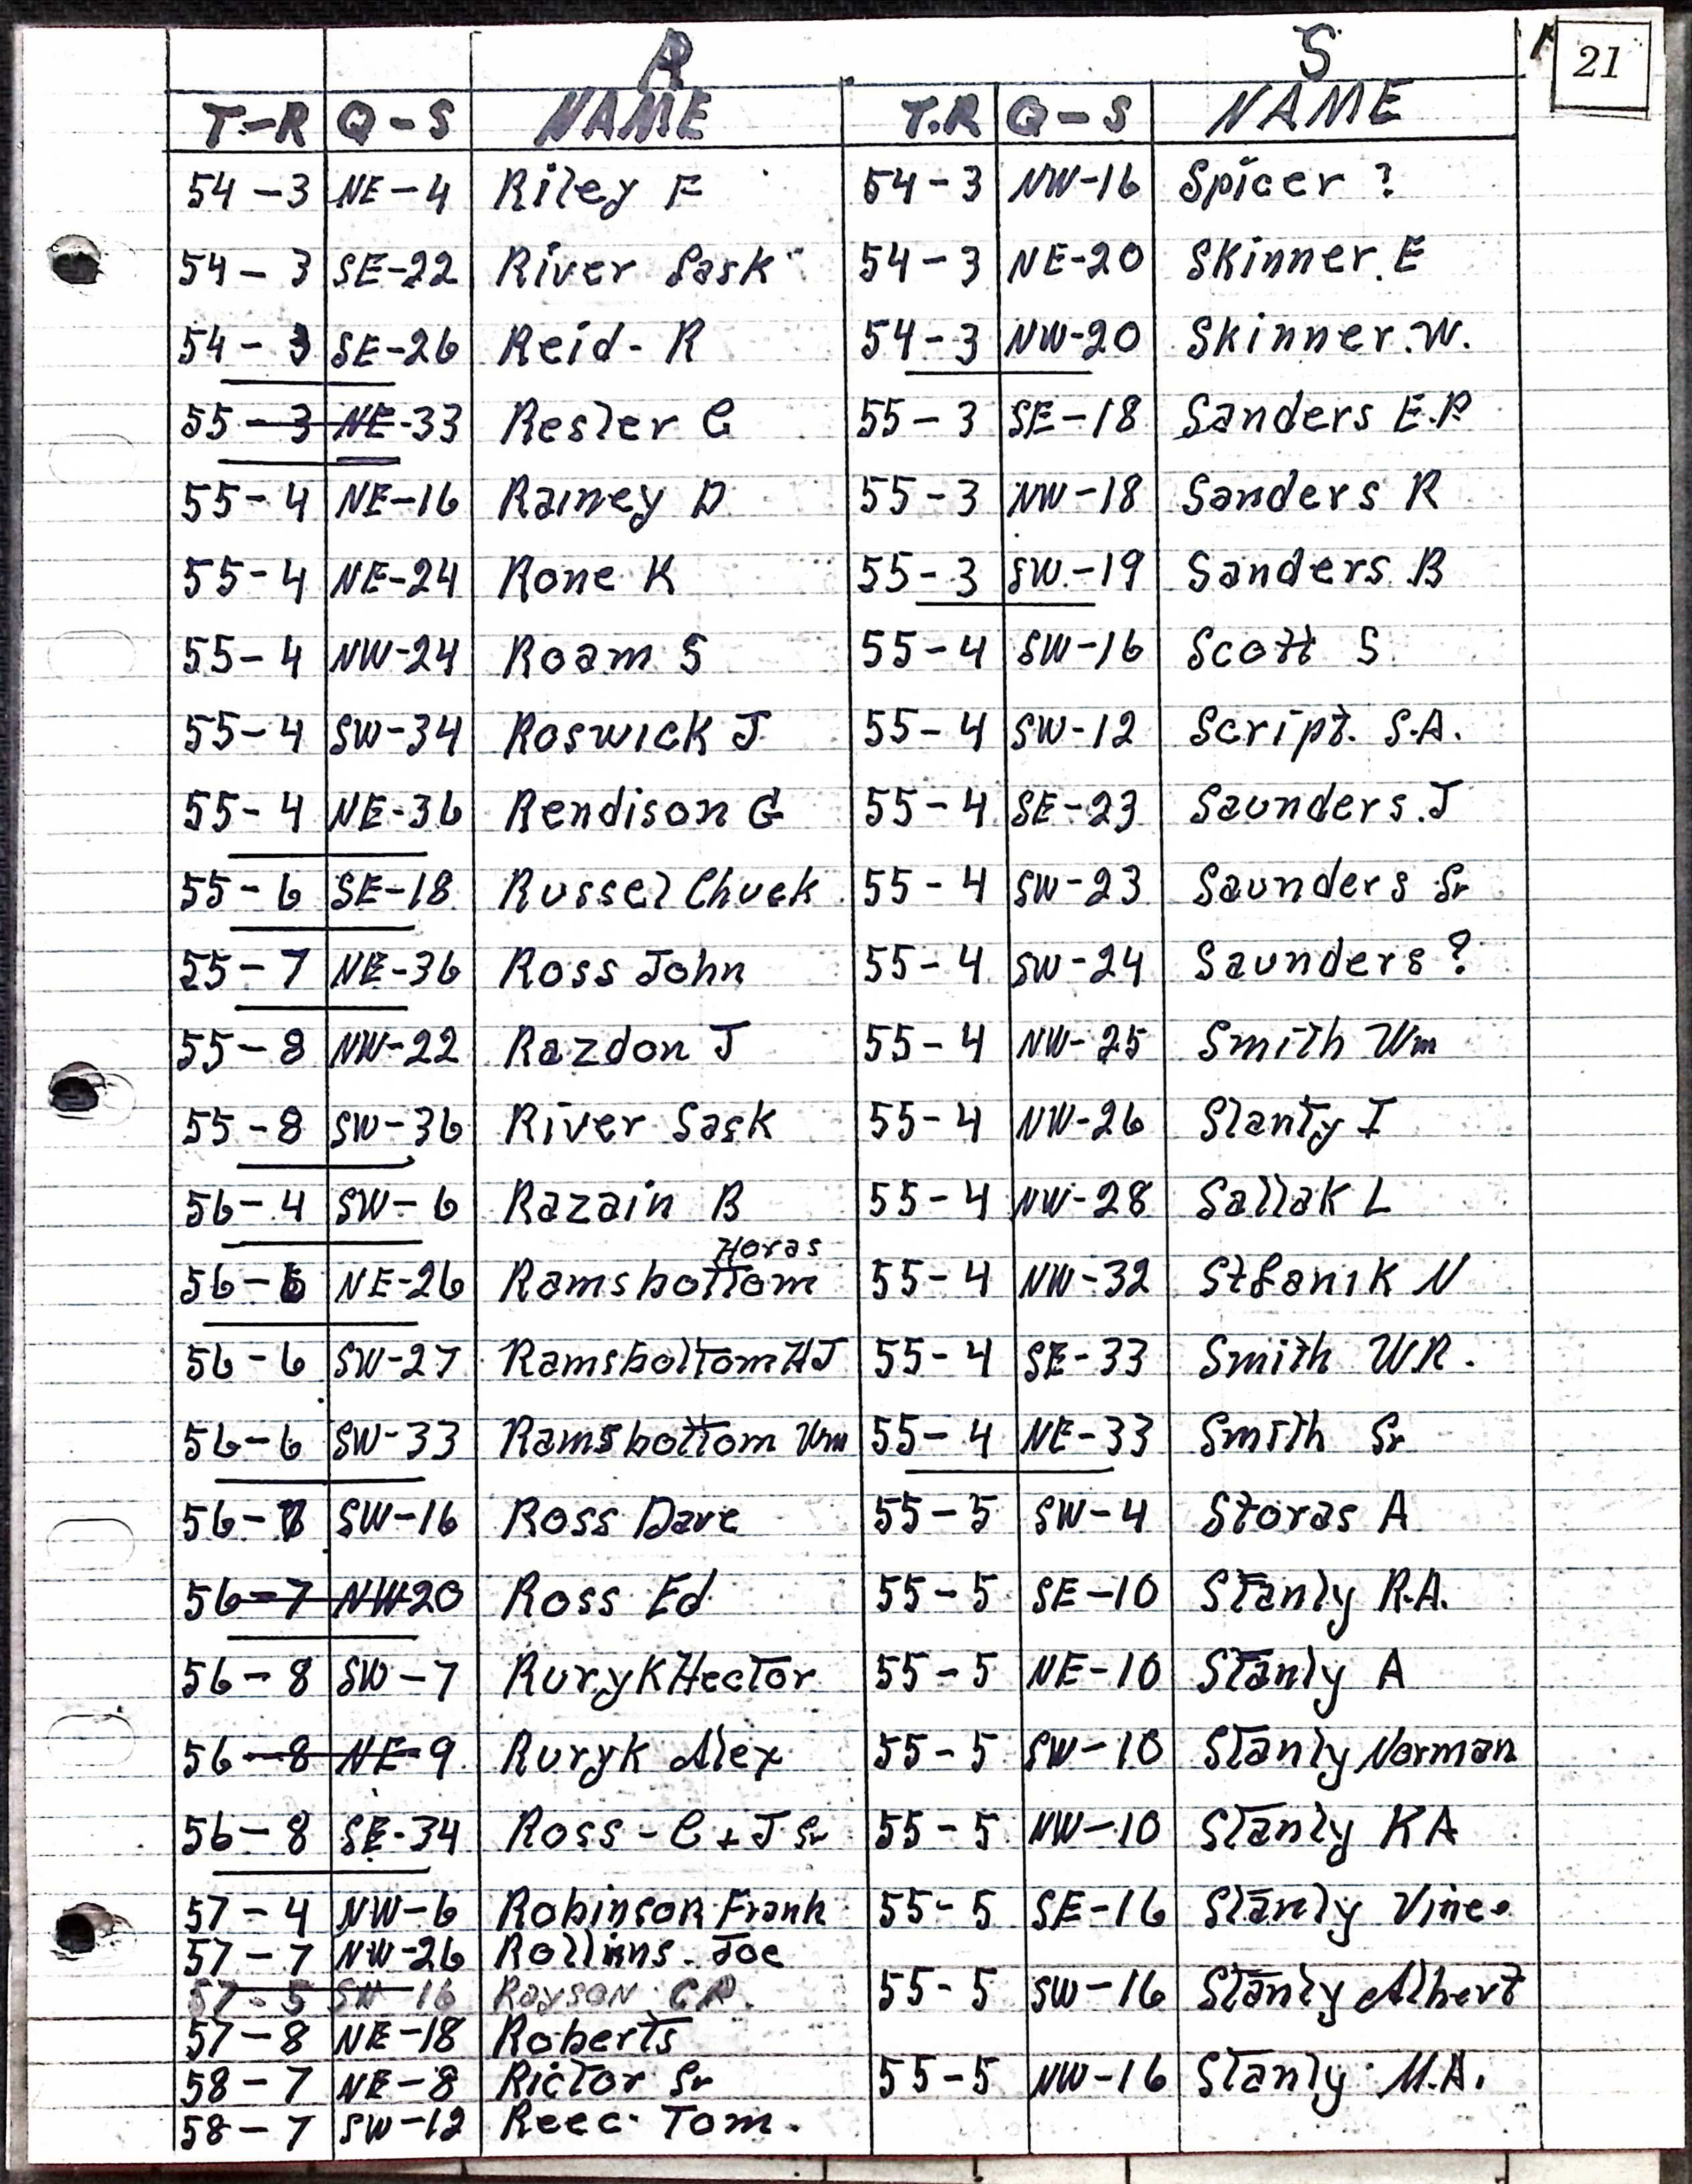 21
R S
T-R Q-S NAME T.R Q-S NAME
54-3 NE-4 Riley F 54-3 NW-16 Spicer ?
54-3 SE-22 River Sask 54-3 NE-20 Skinner. E
54-3 SE-26 Reid-R 54-3 NW-20 Skinner. W.
55-3 NE-33 Resler C 55-3 SE-18 Sanders E.R
55-4 NE-16 Rainey D 55-3 NW-18 Sanders R
55-4 NE-24 Rone K 55-3 SW-19 Sanders B
55-4 NW-24 Roam S 55-4 SW-16 Scott S
55-4 SW-34 Roswick J 55-4 SW-12 Script. S.A.
55-4 NE-36 Rendison G 55-4 SE-23 Saunders. J
55-6 SE-18 Russel Chuck 55-4 SW-23 Saunders Sr
55-7 NE-36 Ross John 55-4 SW-24 Saunders ?
55-8 NW-22 Razdon J 55-4 NW-25 Smith Wm
55-8 SW-36 River Sask 55-4 NW-26 Slanty I
56-4 SW-6 Razain B 55-4 NW-28 Sallak L
Horas
56-6 NE-26 Ramsbottom 55-4 NW-32 Stfanik N
56-6 SW-27 Ramsbottom HJ 55-4 SE-33 Smith WR.
56-6 SW-33 Ramsbottom Wm 55-4 NE-33 Smith Sr
56- SW-16 Ross Dave 55-5 SW-4 Storas A
56-7 NW 20 Ross Ed 55-5 SE-10 Stanly R.A.
56-8 SW-7 Ruryk Hector 55-5 NE-10 Stanly A
56-8 NE-9 Ruryk Alex 55-5 SW-10 Stanly Norman
56-8 SE-34 Ross-C+J Sr 55-5 NW-10 Stanly KA
57-4 NW-6 Robinson Frank 55-5 SE-16 Stanly Vince
57-7 NW-26 Rollins. Joe
57-5 SW-16 Rayson CR. 55-5 SW-16 Stanly Albert
57-8 NE-18 Roberts
58-7 NE-8 Rictor Sr 55-5 NW-16 Stanly M.A.
58-7 SW-12 Reec Tom.